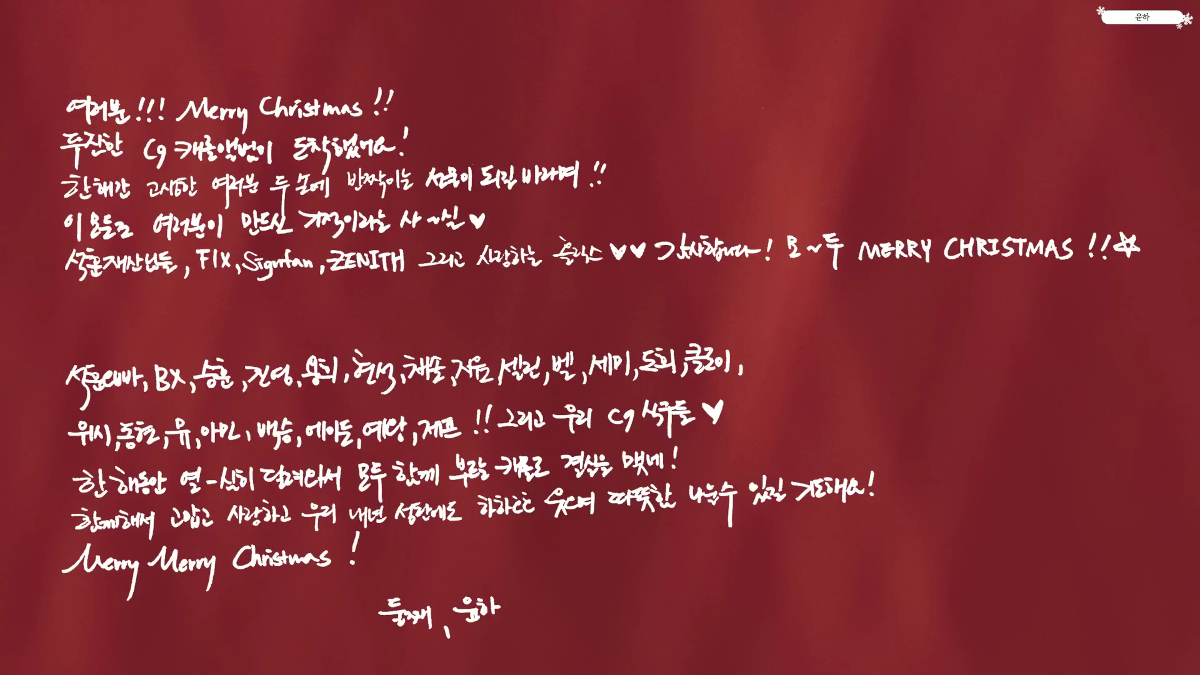 윤하
여러분!!! Merry Christmas!!
푸진한 C9 캐롤앨범이 도착했어요!
한해간 고생한 여러분 두 손에 반짝이는 선물이 되길 바라며!!
이 모든건 여러분이 만드신 기적이라는 사~실♥
석훈재산님들, FIX, Signfan, ZENITH 그리고 사랑하는 홀릭스♥♥ 감사합니다! 모~두 MERRY CHRISTMAS!!☆
석훈오빠, BX, 승훈, 진영, 용희, 현석, 채솔, 지유, 셀린, 벨, 세미, 도희, 클로이,
위시, 동현, 유, 아인, 백승, 에이든, 예담, 제프!! 그리고 우리 C9 식구들♥
한 해동안 열-심히 달려와서 모두 함께 부르는 캐롤로 결실을 맺네!
함께해서 고맙고 사랑하고 우리 내년 성탄에도 하하호호 웃으며 따뜻함 나눌수 있길 기도해요!
Merry Merry Christmas!
둘째, 윤하